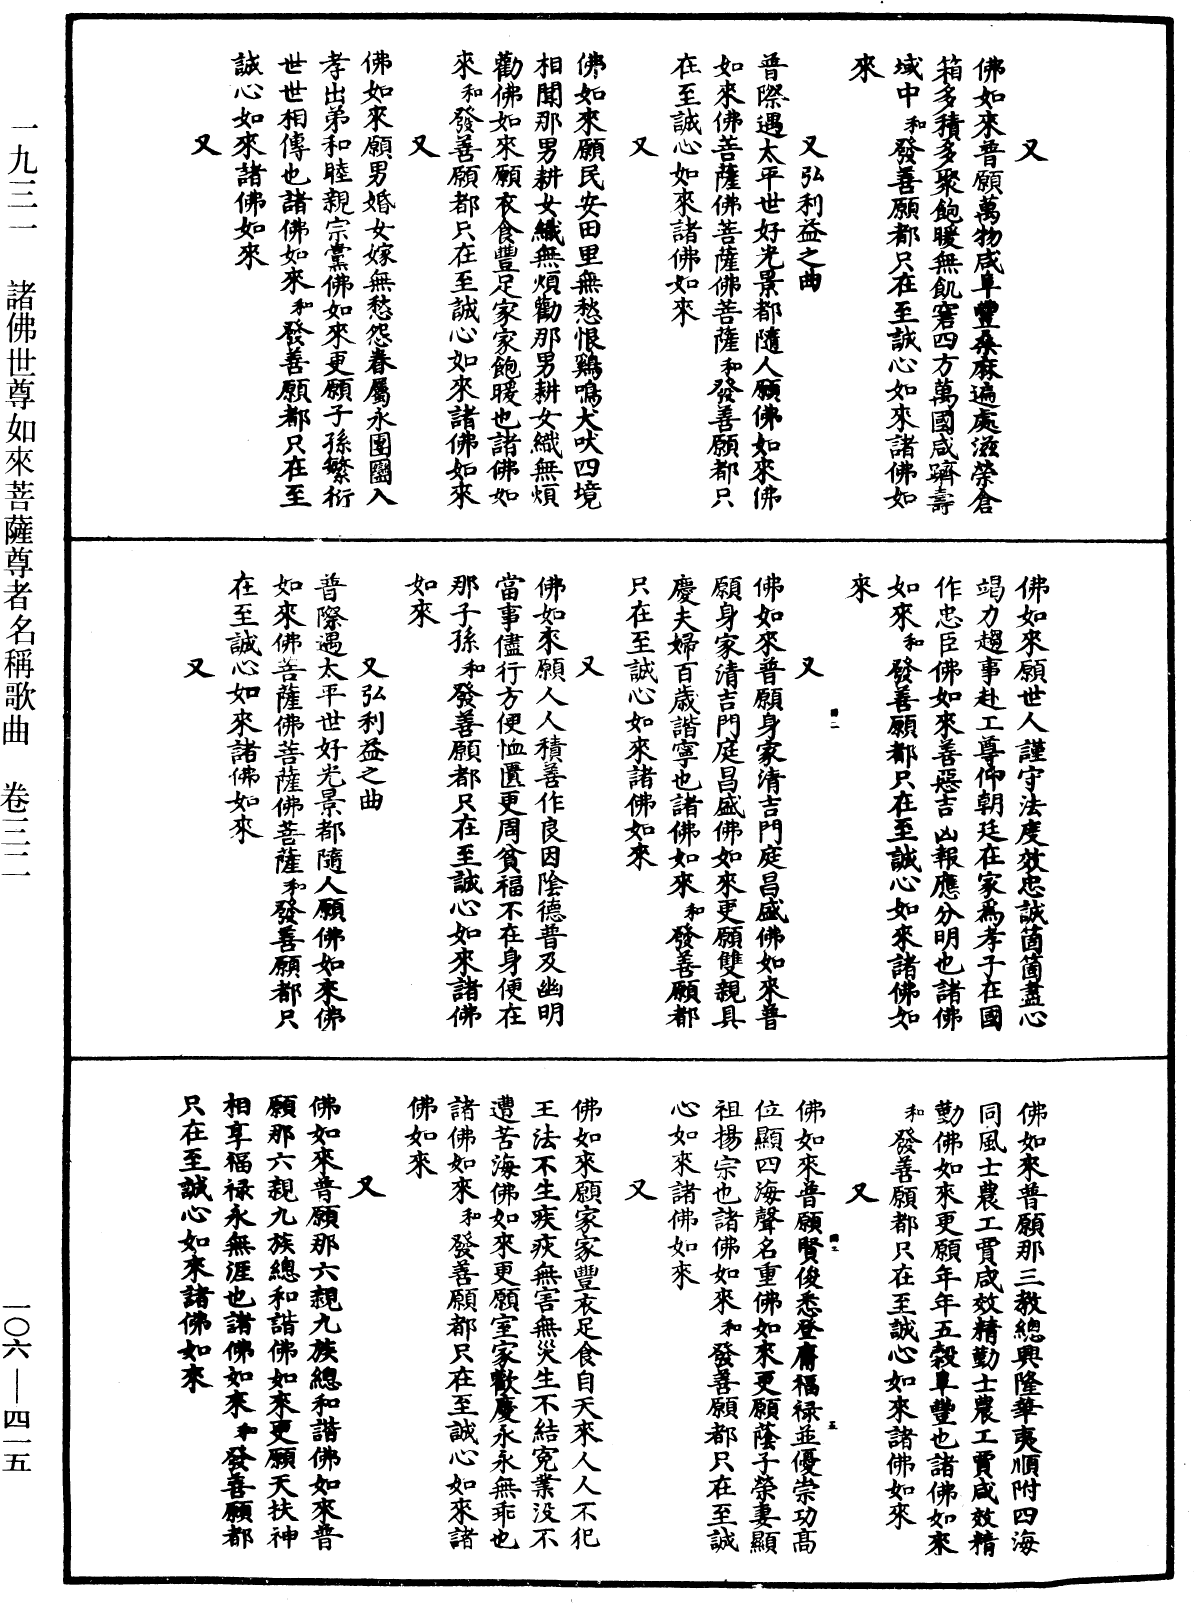 又
佛如來普願萬物咸阜豐桑麻遍處滋榮倉
箱多積多聚飽暖無飢窘四方萬國咸躋壽
域中和發善願都只在至誠心如來諸佛如
來
又弘利益之曲
普際遇太平世好光景都隨人願佛如來佛
如來佛菩薩佛菩薩佛菩薩和發善願都只
在至誠心如來諸佛如來
又
佛如來願民安田里無愁恨鷄鳴犬吠四境
相聞那男耕女織無煩勸那男耕女織無煩
勸佛如來願衣食豐足家家飽暖也諸佛如
來和發善願都只在至誠心如來諸佛如來
又
佛如來願男婚女嫁無愁怨眷屬永團圞入
孝出弟和睦親宗黨佛如來更願子孫繁衍
世世相傳也諸佛如來和發善願都只在至
誠心如來諸佛如來
又
佛如來願世人謹守法度效忠誠箇箇盡心
竭力趨事赴工尊仰朝廷在家爲孝子在國
作忠臣佛如來善惡吉凶報應分明也諸佛
如來和發善願都只在至誠心如來諸佛如
來
又
佛如來普願身家清吉門庭昌盛佛如來普
願身家清吉門庭昌盛佛如來更願雙親具
慶夫婦百歲諧寧也諸佛如來和發善願都
只在至誠心如來諸佛如來
又
佛如來願人人積善作良因陰德普及幽明
當事儘行方便恤匱更周貧福不在身便在
那子孫和發善願都只在至誠心如來諸佛
如來
又弘利益之曲
普際遇太平世好光景都隨人願佛如來佛
如來佛菩薩佛菩薩佛菩薩和發善願都只
在至誠心如來諸佛如來
又
佛如來普願那三教總興隆華夷順附四海
同風士農工賈咸效精勤士農工賈咸效精
勤佛如來更願年年五穀阜豐也諸佛如來
和發善願都只在至誠心如來諸佛如來
又
佛如來普願賢俊悉登庸福祿並優崇功高
位顯四海聲名重佛如來更願蔭子榮妻顯
祖揚宗也諸佛如來和發善願都只在至誠
心如來諸佛如來
又
佛如來願家家豐衣足食自天來人人不犯
王法不生疾疢無害無災生不結冤業没不
遭苦海佛如來更願室家歡慶永永無乖也
諸佛如來和發善願都只在至誠心如來諸
佛如來
又
佛如來普願那六親九族總和諧佛如來普
願那六親九族總和諧佛如來更願天扶神
相享福祿永無涯也諸佛如來和發善願都
只在至誠心如來諸佛如來
一九三一 諸佛世尊如來菩薩尊者名稱歌曲 卷三二
一〇六—四一五